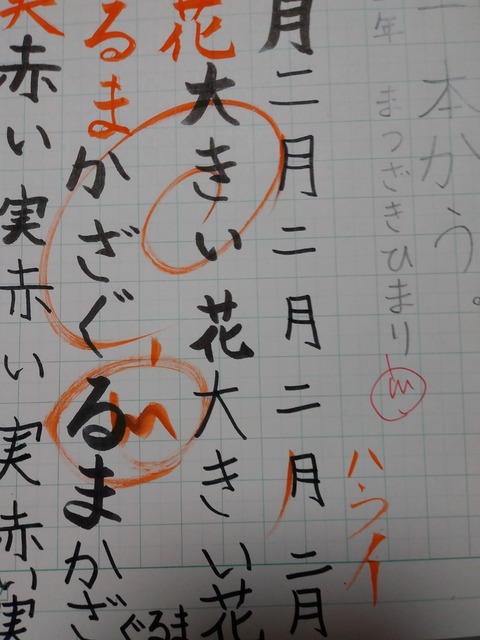 本かう。
年 まつざきひまり
ハライ
月二月二月二月二月
花大きい花大きい花
るまかざぐるまかざぐるま
実赤い実赤い実赤い実